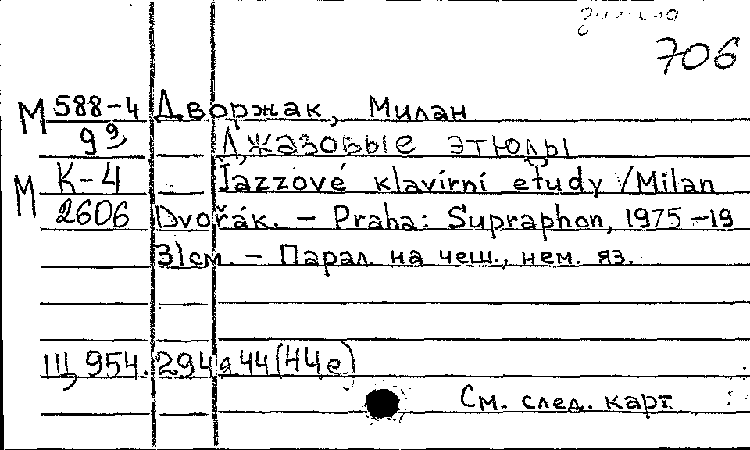 706
М 588-4 Дворжак, Милан
99 Джазовые этюды
М К-4 Jazzové klavírní etudy / Milan
2606 Dvořák. – Praha: Supraphon, 1975 – 19
31см. – Парал. на чеш., нем. яз.
Щ 954.294 я 44 (44 е)
См. след. карт.